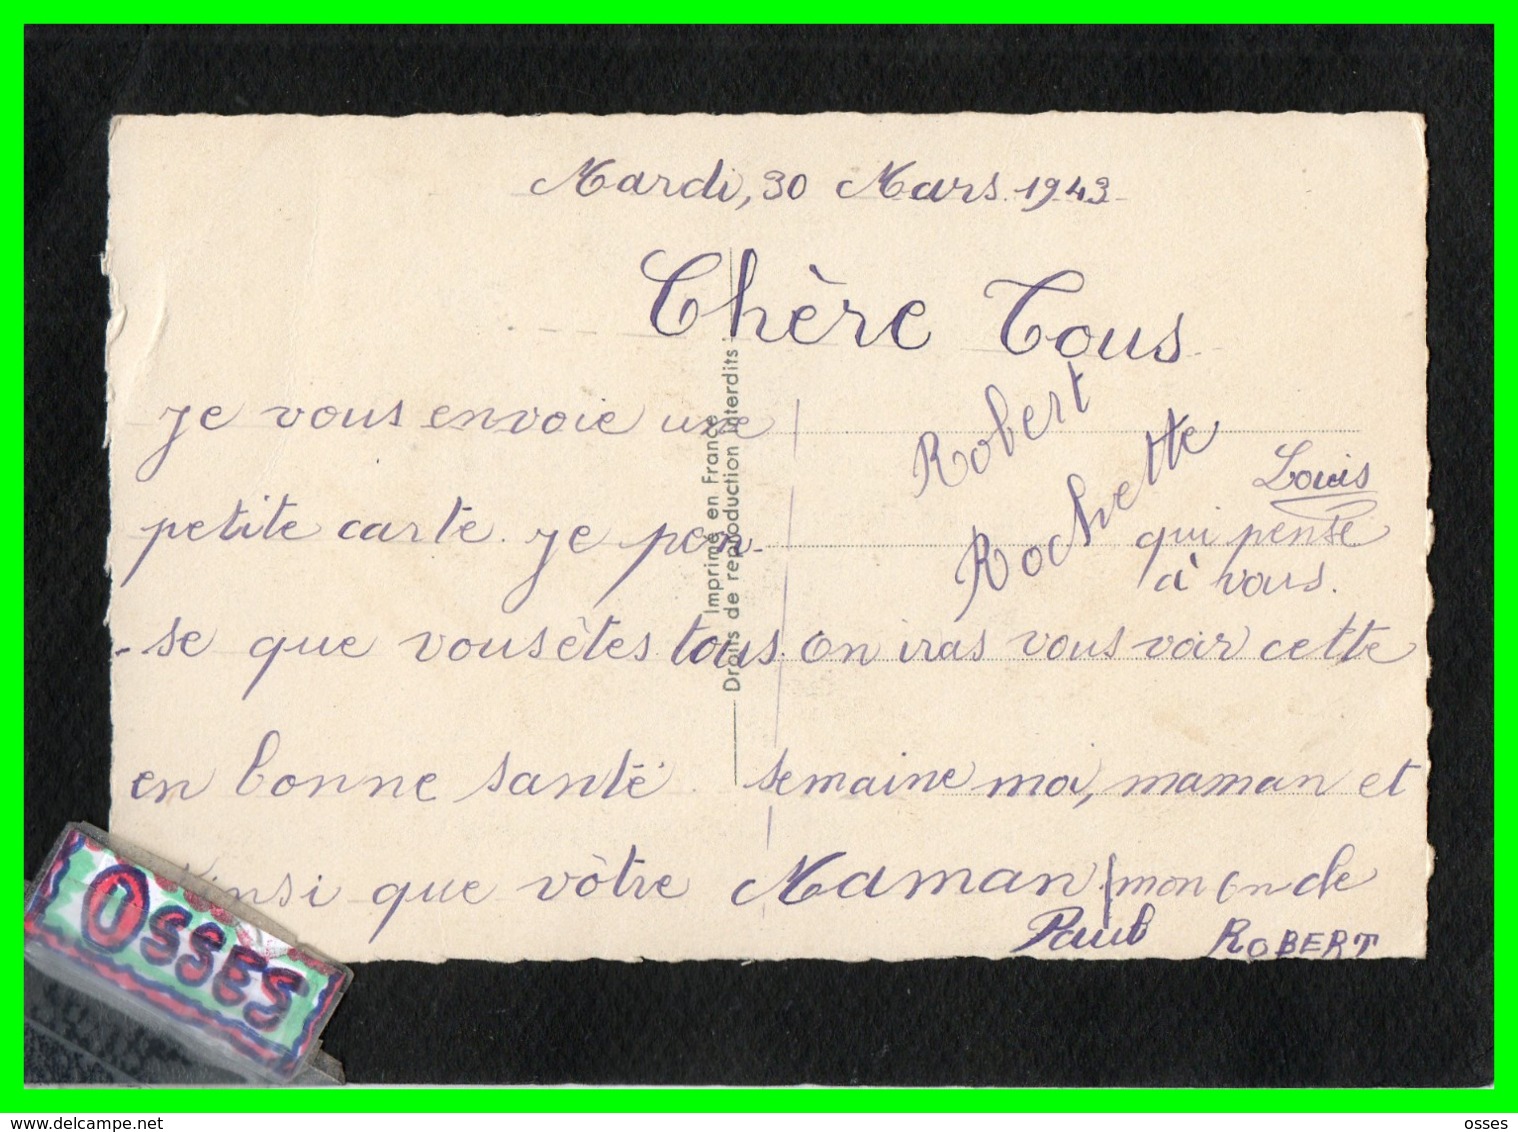 Mardi, 30 Mars 1943
Chère Tous
je vous envoie une
petite carte. je pen-
-se que vous êtes tous
en bonne santé.
insi que vôtre Maman
Robert
Rochette
Louis
qui pense
à vous.
On iras vous voir cette
semaine moi, maman et
mon oncle
Paul ROBERT
Imprimé en France
Droits de reproduction interdits
OSSES
www.delcampe.net
osses